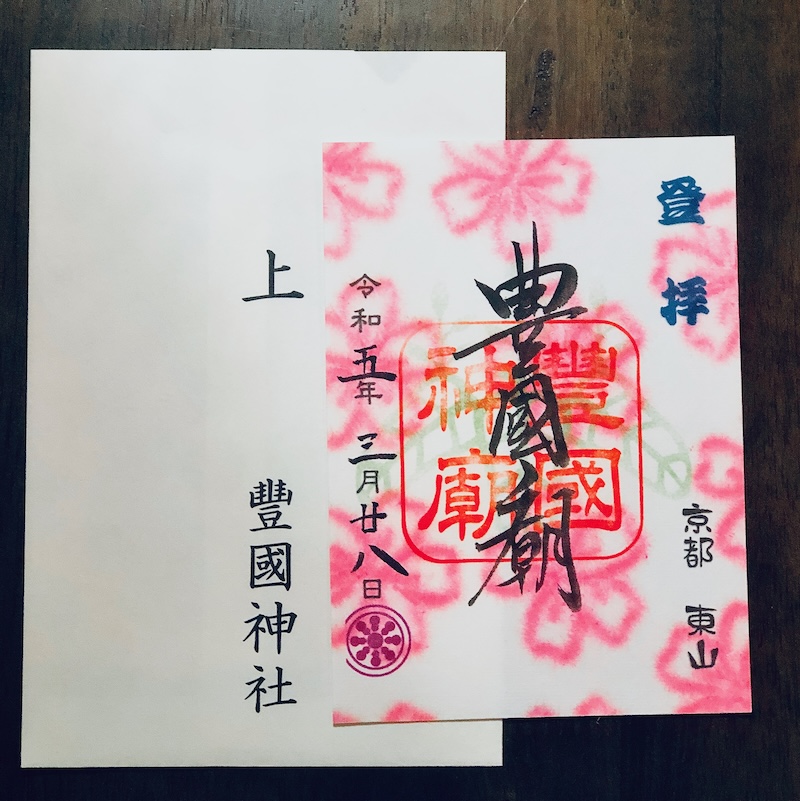 登拝
京都 東山
豊國廟
豐國神廟
令和五年 三月廿八日
上
豐國神社